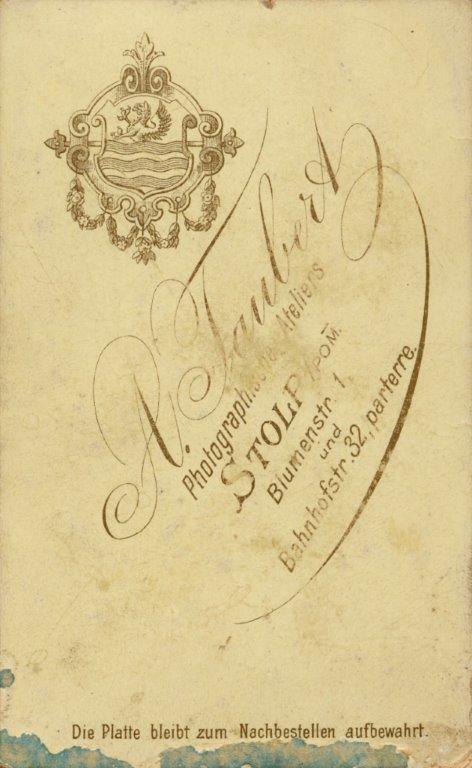 A. Taubert
Photographische Ateliers
STOLP i/POM.
Blumenstr. 1
und
Bahnhofstr. 32, parterre.
Die Platte bleibt zum Nachbestellen aufbewahrt.